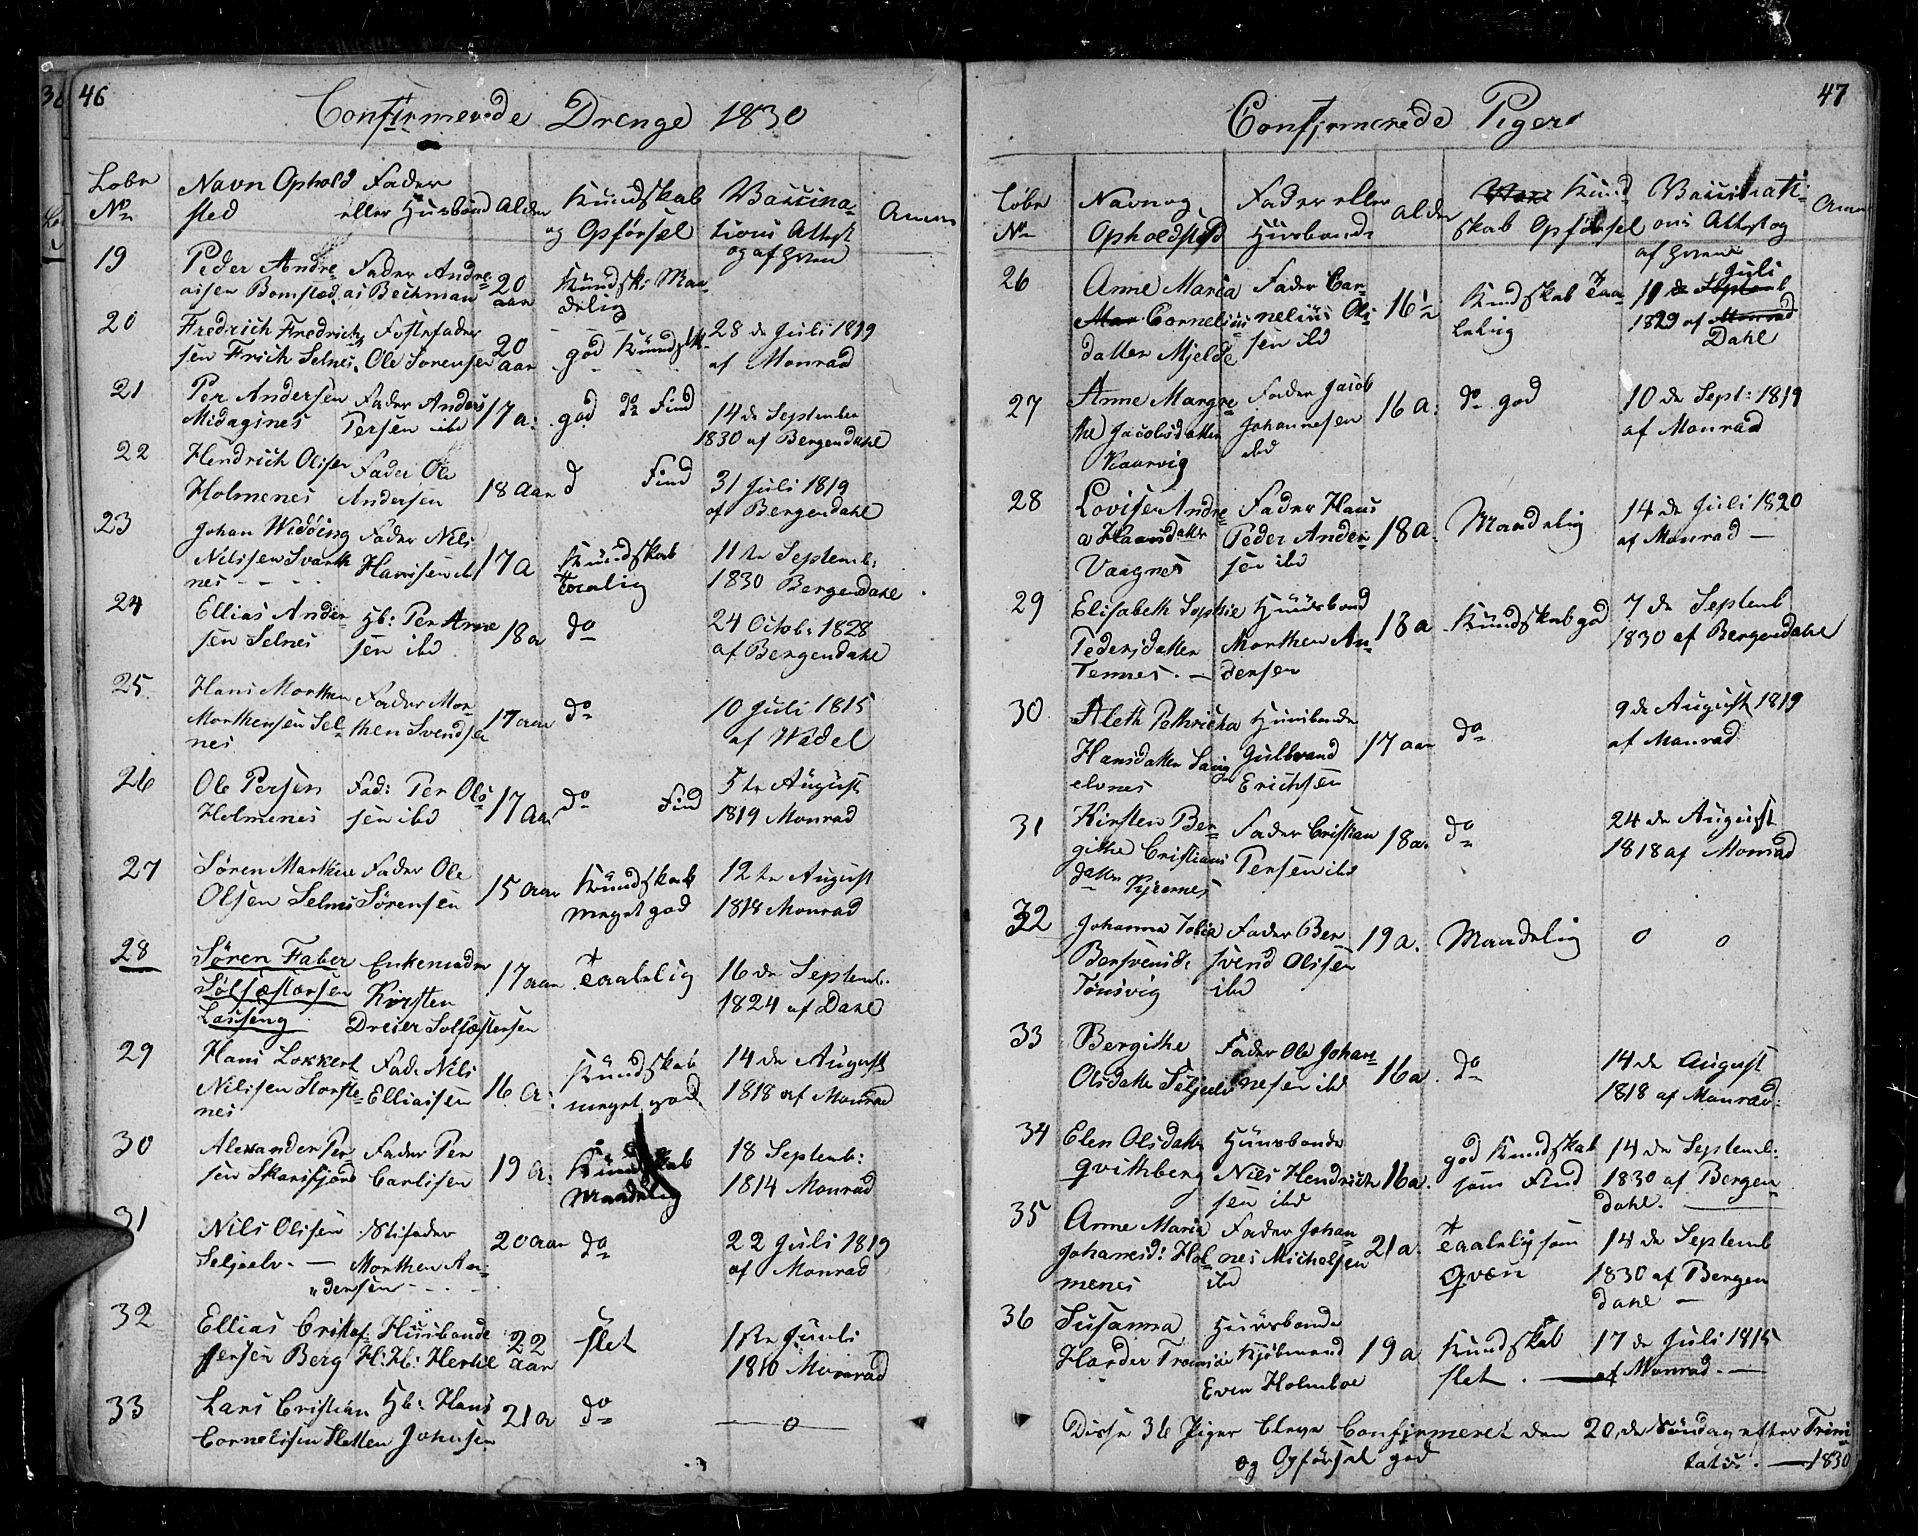 46
Confirmerede Drenge 1830
Løbe No Navn Ophold sted Fader eller Husbond Alder Kundskab og Opførsel Vaccinations Attest og af hvem Anm
19 Peder Andreasen Bomsted Fader Andreas Beckman 20 aar Kundsk: Maadelig
20 Fredrich Fredrichsen Frich Selnes. Fosterfader Ole Sørensen 20 aar god Kundsk. 28 de Juli 1819 af Monrad
21 Per Andersen Midagsnes Fader Anders Persen ibd 17 a: god do Find 14 de September 1830 af Bergendahl
22 Hendrich Olisen Holmenes Fader Ole Andersen 18 aar d Find 31 Juli 1819 af Bergendahl
23 Johan Widding Nilssen Svartnes Fader Nils Hansen ib 17 a Kundskab Taalig 11 te Septemb: 1830 Bergendahl
24 Ellias Andersen Selnes Hb: Per Arnesen ibd 18 a do 24 Octob: 1828 af Bergendahl
25. Hans Morthen Morthensen Selnes Fader Morthen Svendsen 17 aar do 10 Juli 1815 af Wadel
26 Ole Persen Holmenes Fad: Per Olssen ibd 17 aar do Find 5 te August 1819 Monrad
27 Søren Marthen Olsen Selnes Fader Ole Sørensen 15 aar Kundskab meget god 12 te August 1818 Monrad
28 Søren Faber Solfæstersen Lasseng Enkemadm Kirsten Dreier Solfæstersen 17 aar Taalelig 16 de Septemb. 1824 af Dahl
29 Hans Lokkert Nilssen Storstenes Fad. Nils Elliassen 16 a: Kundskab meget god 14 de August 1818 af Monrad
30 Alexander Persen Skarsfjord Fader Per Carlssen 19 a: Kundskab Maadelig 18 Septemb: 1814 Monrad
31 Nils Olssen Seljeelv. Stifader Morthen Andersen 20 aar do 22 Juli 1819 af Monrad
32 Ellias Cristofersen Berg Husbonde H: H: Hertel 22 aar slet 1ste Juuli 1810 Monrad
33 Lars Cristian Cornelisen Sletten Hb: Hans Johnsen 21 a do — o —
47
Confirmerede Piger
Løbe No Navn og Opholdsted Fader eller Husbonde Alder Kundskab Opførsel Vaccinations Attest og af hvem Anm
26 Anne Maria Mar Corneliusdatter Mjelde Fader Cornelius Olsen ibd 16½ Kundskab Taalelig 11 de Septemb Juli 1829 af Monrad Dahl
27 Anne Margrethe Jacobsdatter Kaarvig Fader Jacob Johannesen ibd 16 a: do god 10 de Sept: 1819 af Monrad
28 Lovise Andrea Hansdatter Vaagnes Fader Hans Peder Andersen ibd 18 a. Maadelig 14 de Juli 1820 af Monrad —
29 Elisabeth Sophie Pedersdatter Tennes. — Huusbond Morthen Andersen 18 a Kundskab god 7 de Septemb 1830 af Bergendahl
30 Aleth Pethricka Hansdatter elvnes Huusbonde Gulbrand Erichsen 17 aar do 9 de August 1819 af Monrad
31 Kirsten Bergithe Cristiansdatter Fader Cristian Persen ibd 18 a. do 24 de August 1818 af Monrad
32 Johanna Tobia Bersvends: Tønsvig Fader Bersvend Olssen ibd 19 a. Maadelig o o
33 Bergithe Olsdatter Seljeelv Fader Ole Johannesen ibd 16 a. do 14 de August 1818 af Monrad.
34 Elen Olsdatter Qvithberg Huusbonde Nils Hendrichsen ibd 16 a. god Kundskab som Find 14 de Septemb. 1830 af Bergendahl. —
35 Anne Maria Johanesd: Holmenes Fader Johannes Michelsen ibd 21 a. Taalelig som Qvæn 14 de Septemb 1830 af Bergendahl —
36 Susanna Harder Tromsøe Huusbonde Kjøbmand Even Holmboe 19 a Kundskab slet. — 17 de Juli 1815 af Monrad. —
Disse 36 Piger bleve Confirmeret den 20de Søndag efter Trinitatis. — 1830
og Opførsel god